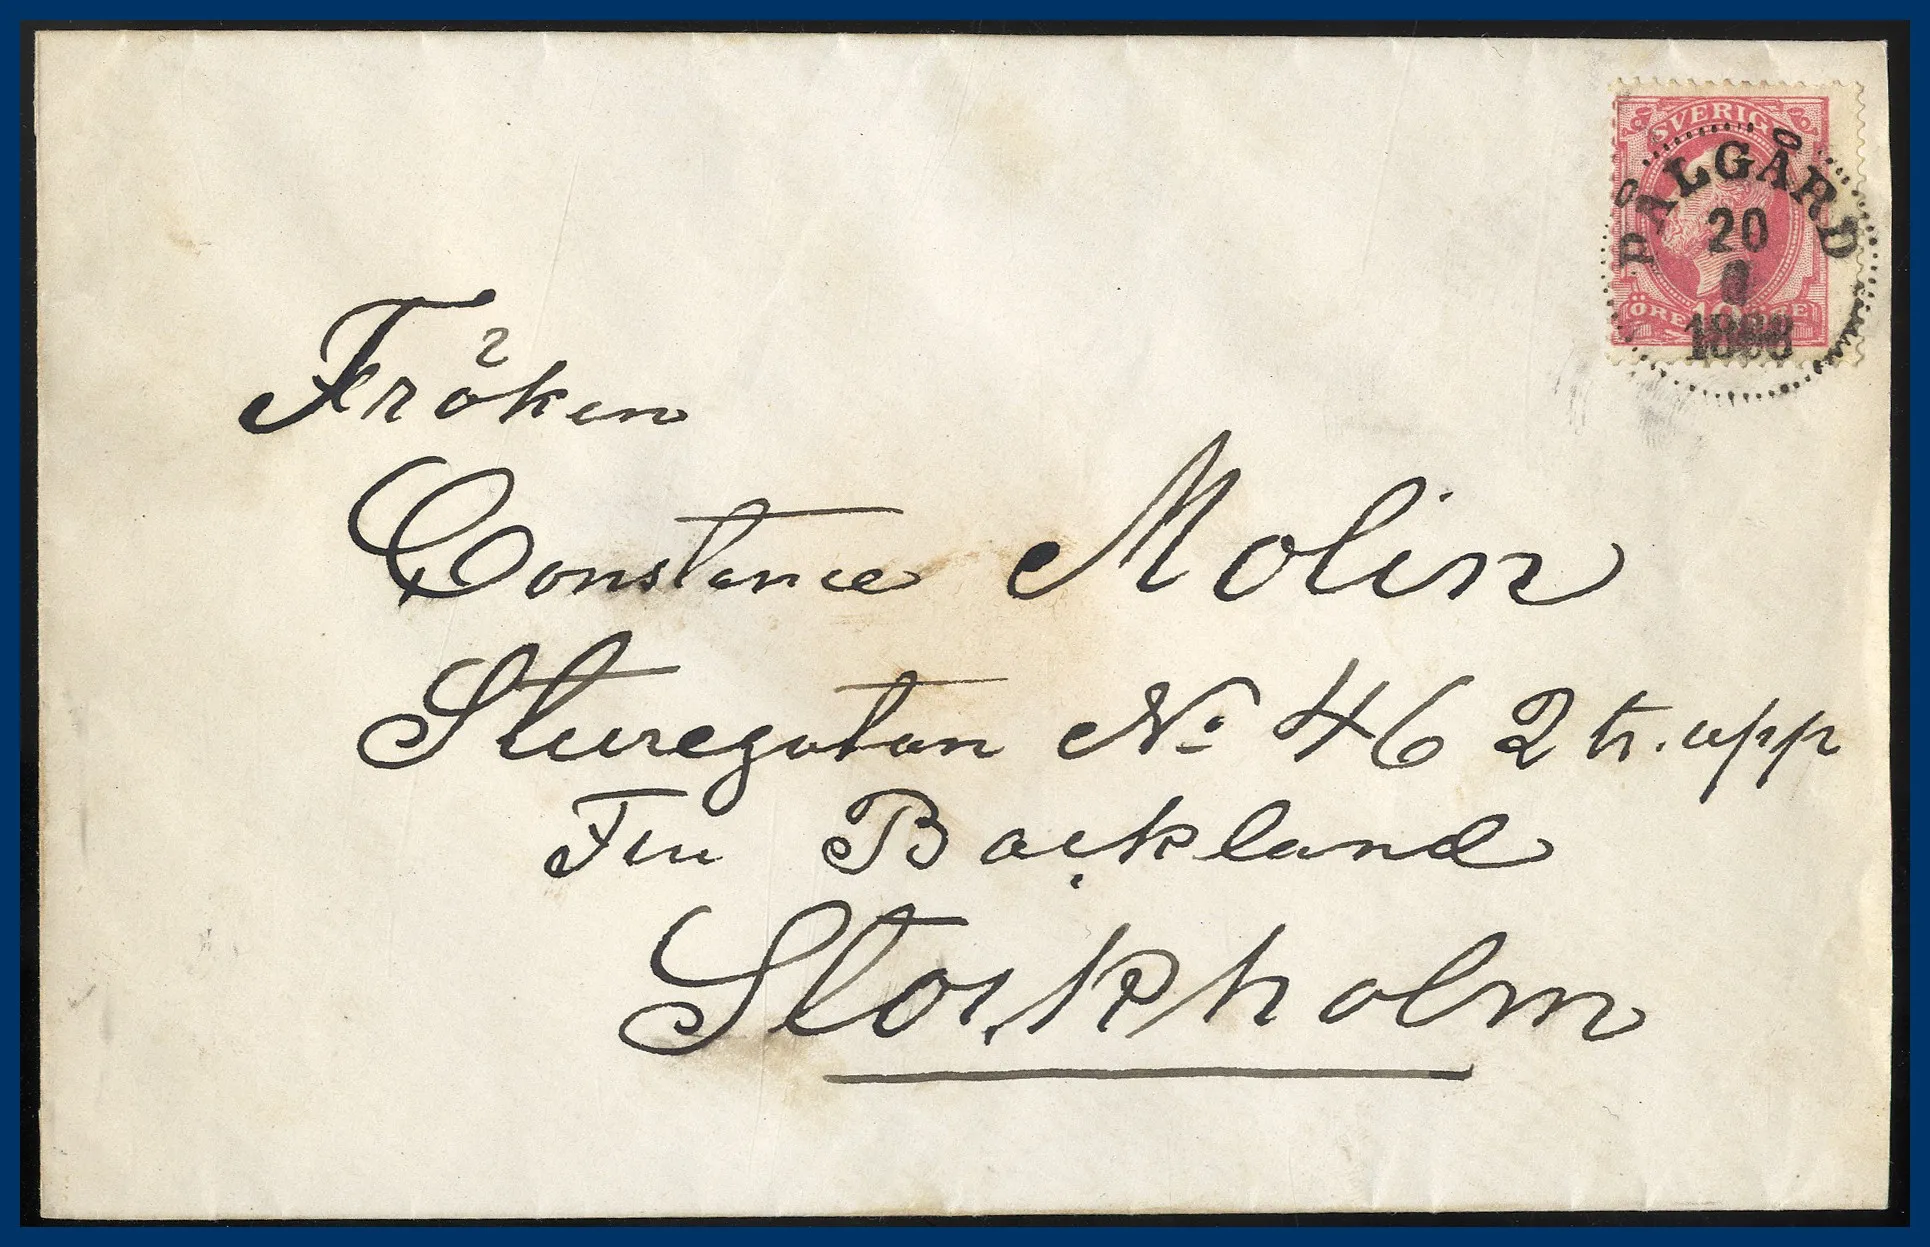 SVERIGE
PALGÅRD
20
ÖRE 10 ÖRE
Fröken
Constance Molin
Sturegatan No 46 2 tr. upp
Fru Backland
Stockholm